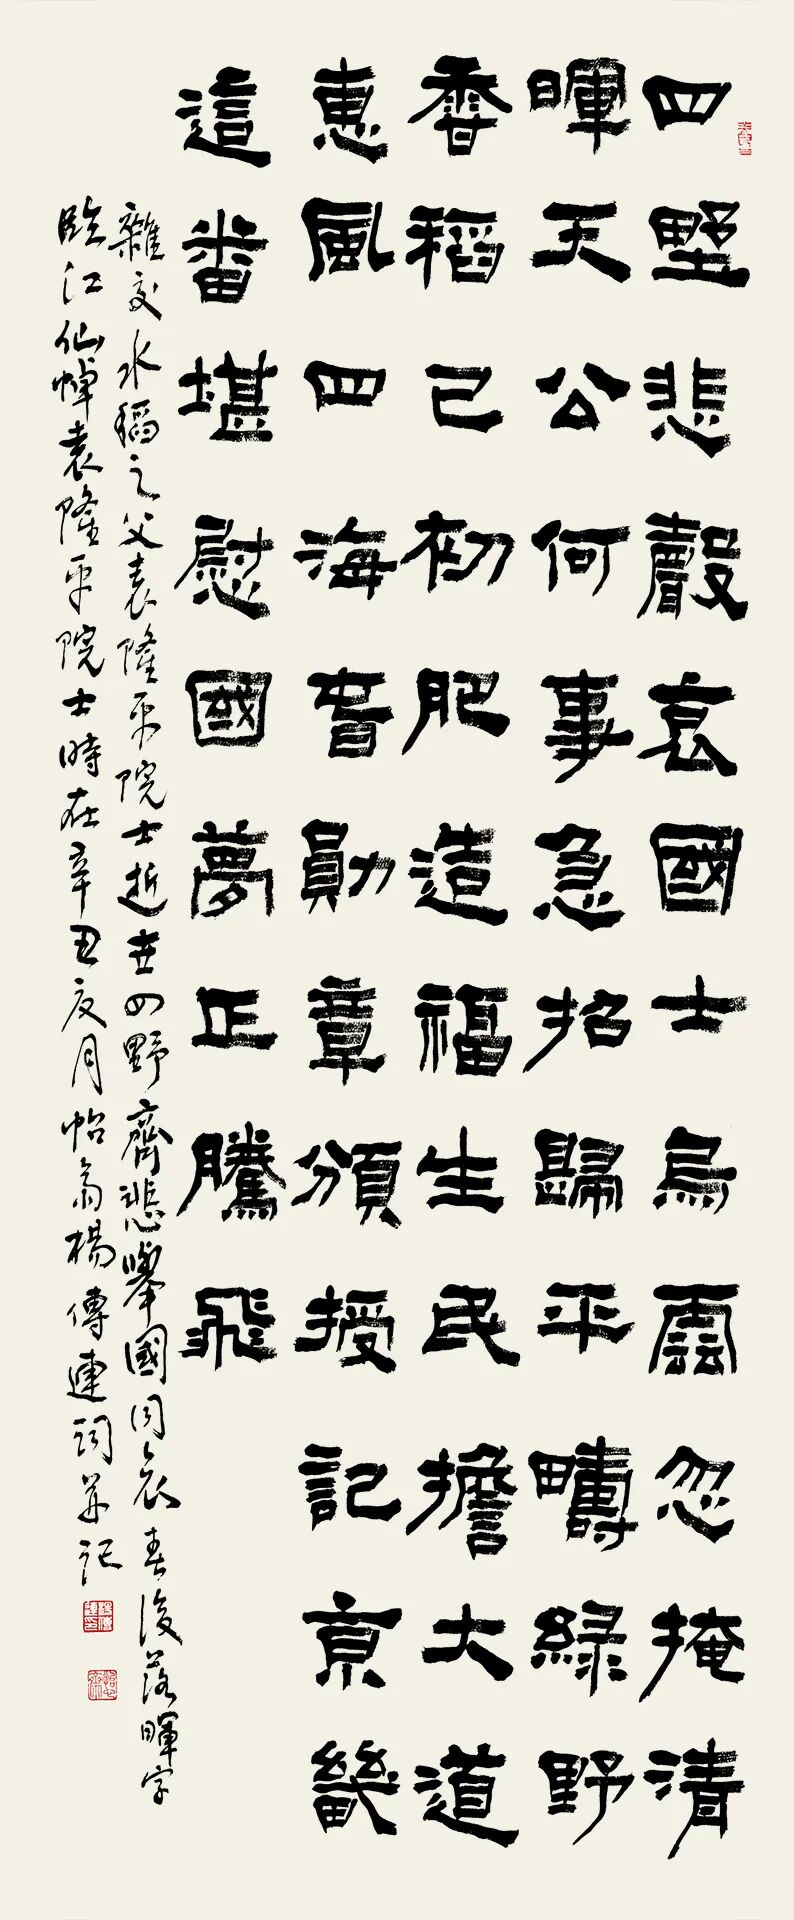 四墅悲聲哀國士烏雲忽掩清
暉天公何事急招歸平疇綠野
香稻已初肥造福生民擔大道
惠風四海春勛章頒授記京畿
這番堪慰國夢正騰飛
雜交水稻之父袁隆平院士逝世四野齊悲舉國同哀春後落暉字
臨江仙悼袁隆平院士時在辛丑夏月怡翁楊傳連詞並記